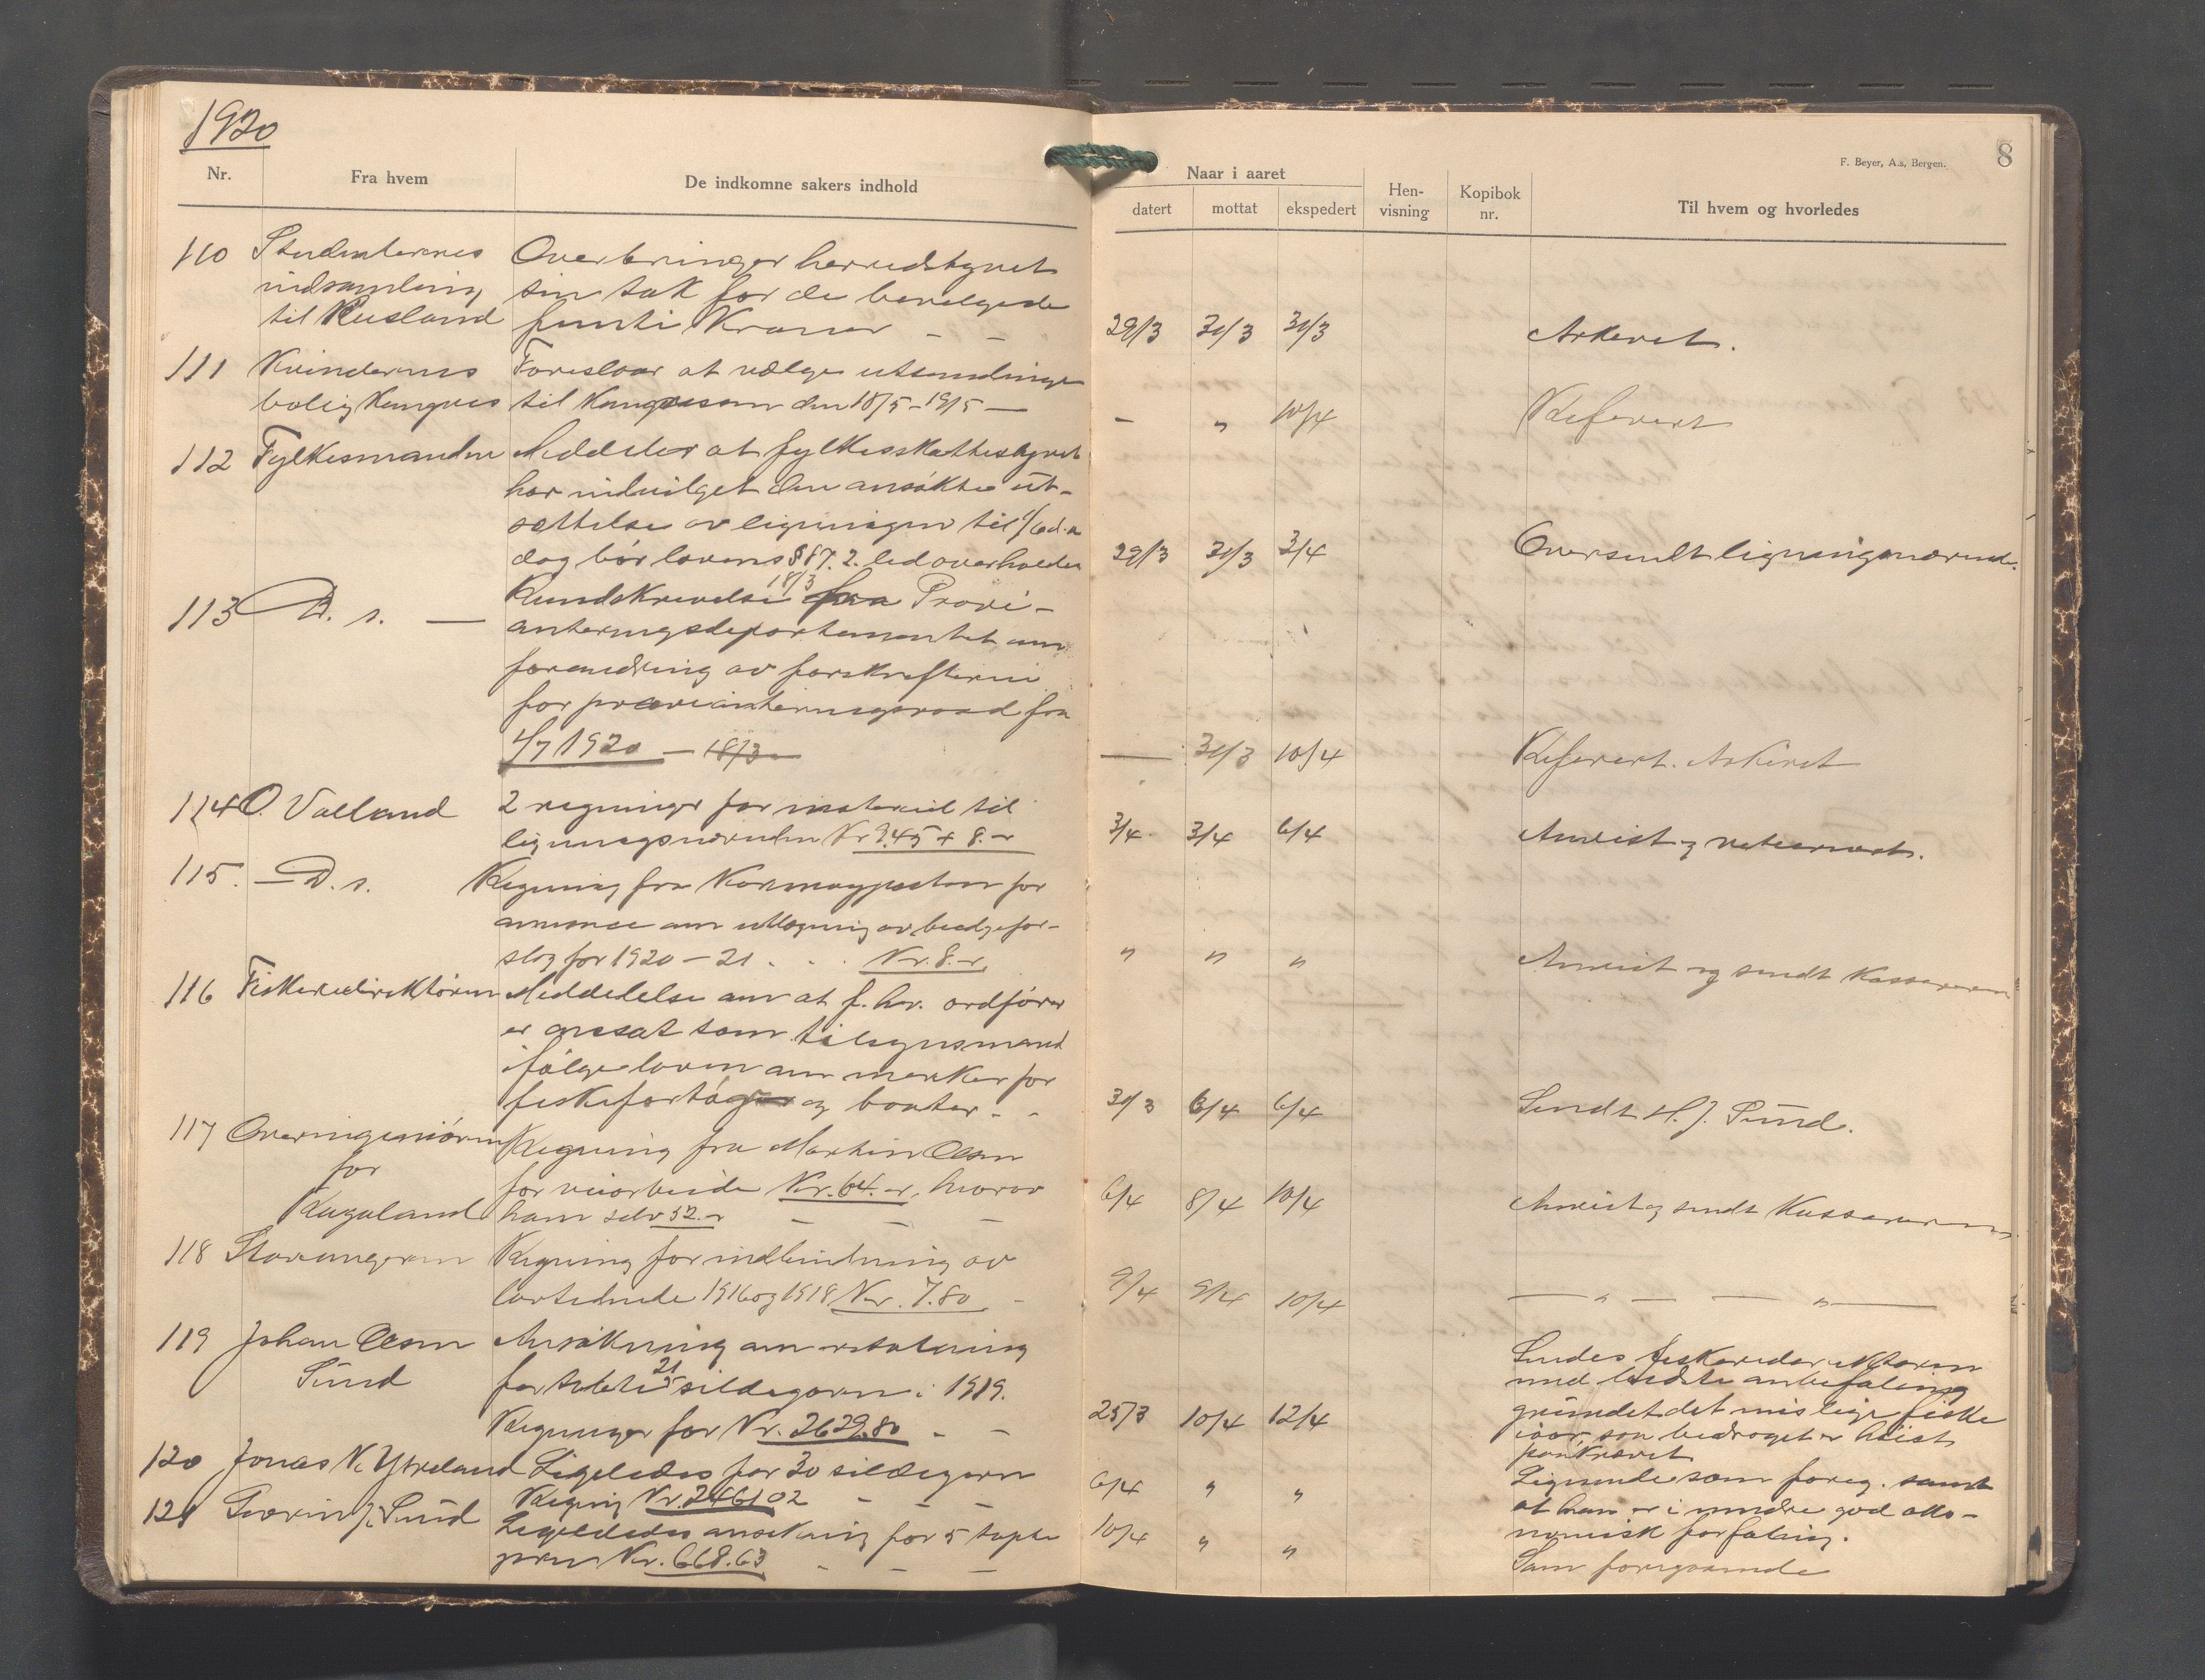 1920
Nr.
Fra hvem
De indkomne sakers indhold
110 Studenternes Overbringer herredstyret
indsamling sin tak for de bevilgede
til Rusland femti Kroner - -
111 Kvindernes Foreslaar at vælge utsendinge
bolig Kongres til Kongressen den 18/5 - 19/5 —
112 Fylkesmanden Meddeler at fylkesskattestyret
har indvilget den ansökte ut-
sættelse av ligningen til 1/6 d.a
dog bör lovens § 87. 2. led overholdes
113 D. s. — Rundskrivelse 18/3 fra Provi-
anteringsdepartementet om
forandring av forskrifterne
for provianteringsraad fra
1/7 1920 — 18/3 —
114 O. Valland 2 regninger for materiel til
ligningsnævnden Kr 9.45 + 8.-
115. — D. s. Regning fra Karmøyposten for
annonce om utlægning av budgefor-
slag for 1920 - 21 . . . Kr. 8.-
116 Fiskeridirektören Meddelelse om at f. hv. ordförer
er ansat som tilsynsmand
ifölge loven om merker for
fiskefartöger og baater - -
117 Overingeniören Regning fra Martin Olsen
for for veiarbeide Kr. 64.-, hvorav
Rogaland ham selv 52.- - - -
118 Stavangeren Regning for indbinding av
lovtidende 1916 og 1918 Kr. 7.80 -
119 Johan Olsen Ansökning om erstatning
Sund for tapte 21 sildegarn i 1919.
Regninger for Kr. 2629.80 - -
120 Jonas N. Ytreland Ligeledes for 30 sildegarn
Regnig Kr. 2461 02 - - -
121 Severin J. Sund Ligeledes ansökning for 5 tapte
garn Kr. 668.63 - - -
8
F. Beyer, A.s, Bergen.
Naar i aaret
datert mottat ekspedert
Hen-
visning
Kopibok
nr.
Til hvem og hvorledes
29/3 31/3 31/3 Arkivet.
— " 10/4 Referert
29/3 31/3 3/4 Oversendt ligningsnævnde.
— 31/3 10/4 Referert. Arkivet
3/4 3/4 6/4 Anvist og returnert.
" " " Anvist og sendt Kassereren
31/3 6/4 6/4 Sendt H. J. Sund.
6/4 8/4 10/4 Anvist og sendt Kassereren
9/4 9/4 10/4 — " — — " —
25/3 10/4 12/4 Sendes fiskeridirektören
med bedste anbefaling
grundet det mislige fiske
iaar, son bedraget er höist
paakrævet
6/4 " " Lignende som foreg. samt
at han er i mindre god öko-
nomisk forfatning.
10/4 " " Som foregaaende